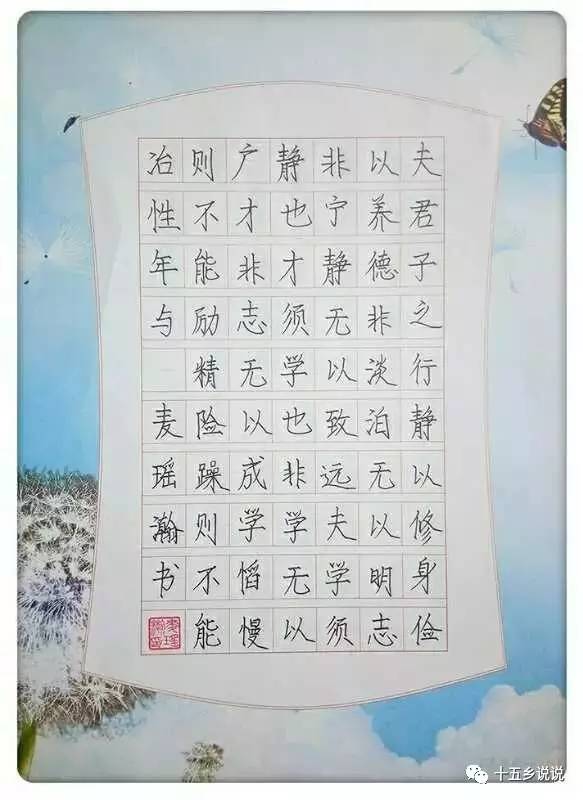 夫君子之行静以修身俭
以养德非淡泊无以明志
非宁静无以致远夫学须
静也才须学也非学无以
广才非志无以成学慆慢
则不能励精险躁则不能
冶性年与
麦瑶瀚书
十五乡说说